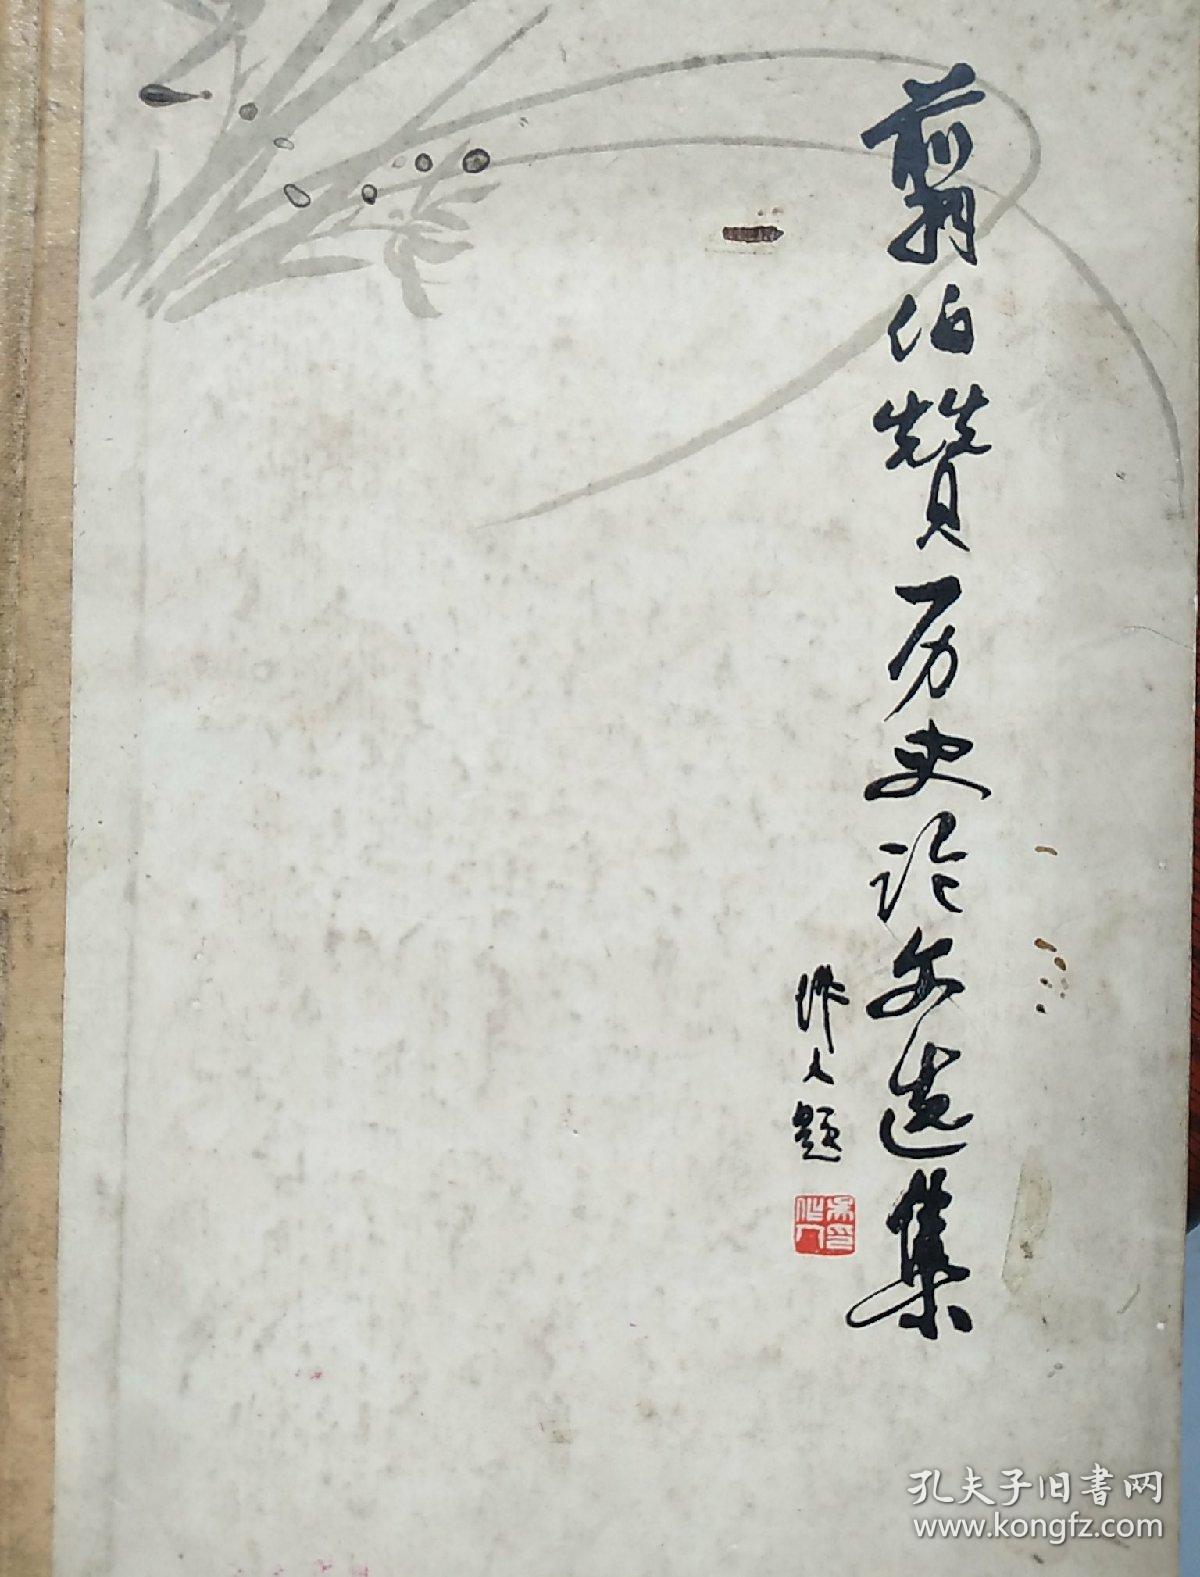 翦伯赞历史论文选集
作人题
吴作人印
孔夫子旧書网
www.kongfz.com